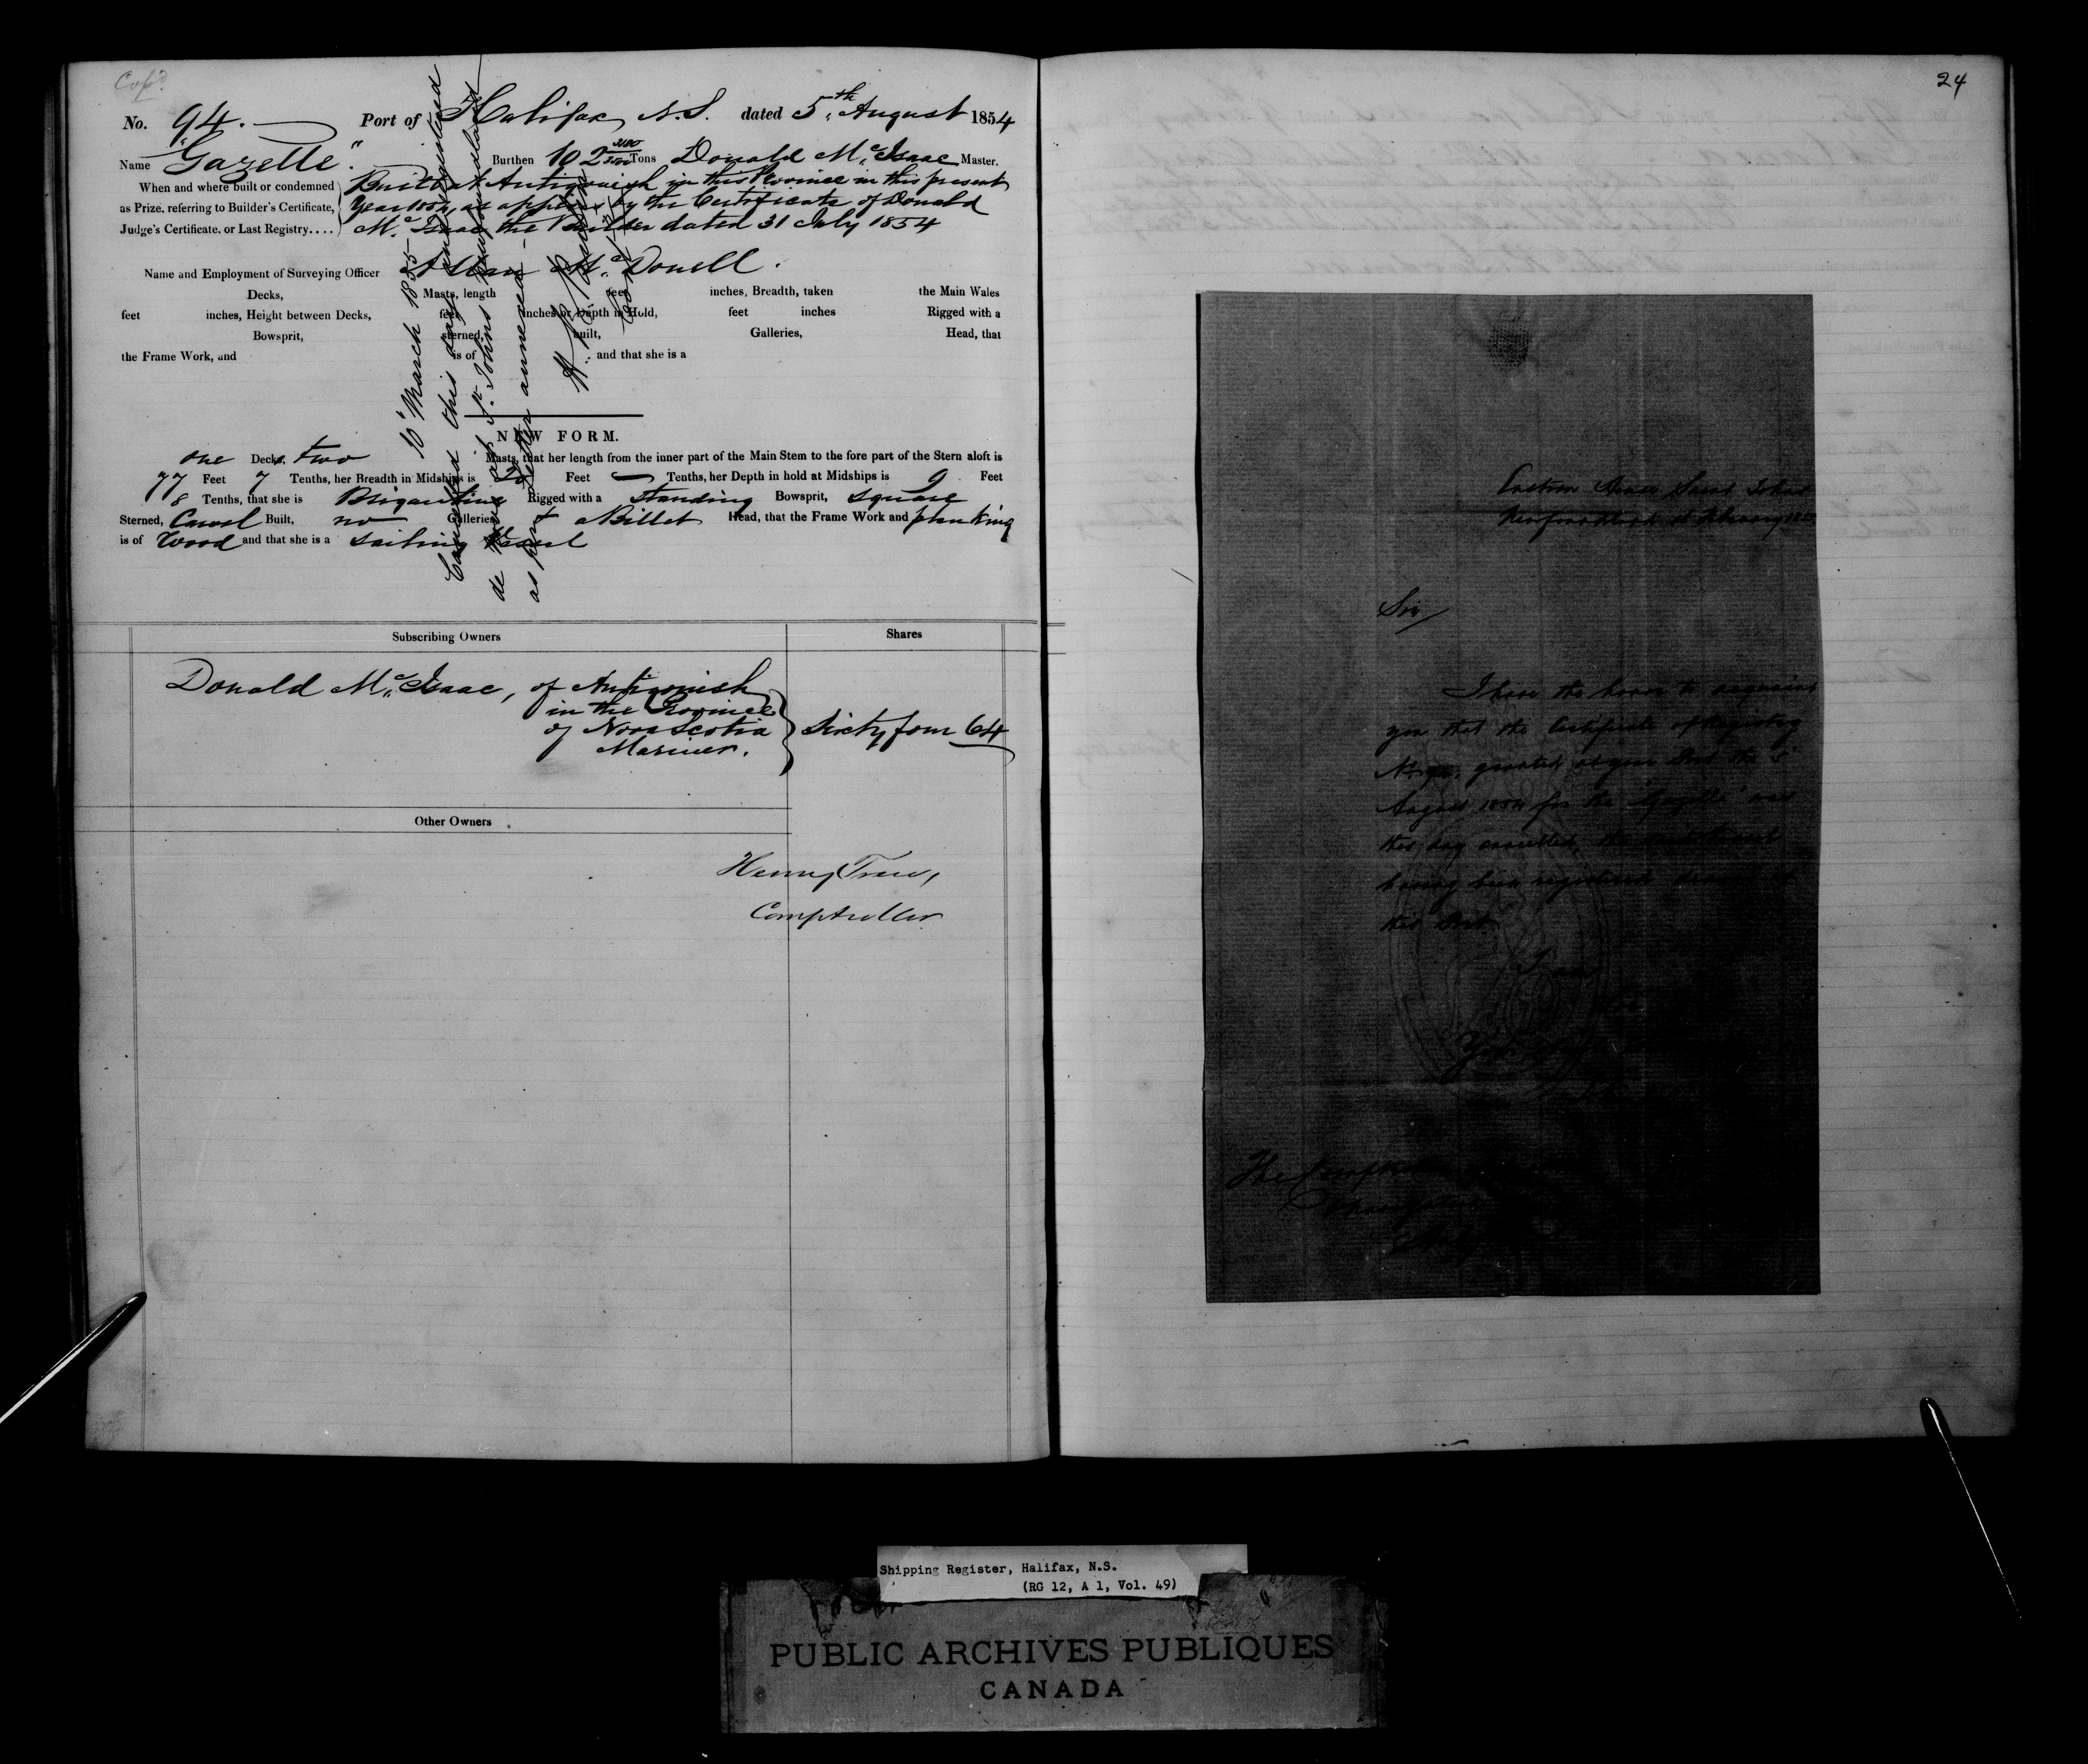 Cop'd
No. 94. Port of Halifax N.S. dated 5th August 1854
Name "Gazelle". Burthen 102 Tons Donald Mc Isaac Master.
When and where built or condemned as Prize, referring to Builder's Certificate, Judge's Certificate, or Last Registry....
Built at Antigonish in this Province in this present
Year 1854, as appears by the Certificate of Donald
Mc Isaac the Builder dated 31 July 1854
Name and Employment of Surveying Officer Allan Mc Donell.
Decks, Masts, length feet inches, Breadth, taken the Main Wales
feet inches, Height between Decks, feet inches or Depth in Hold, feet inches Rigged with a
Bowsprit, sterned, built, Galleries, Head, that
the Frame Work, and is of and that she is a
NEW FORM.
one Decks, two Masts, that her length from the inner part of the Main Stem to the fore part of the Stern aloft is
77 Feet 7 Tenths, her Breadth in Midships is 20 Feet — Tenths, her Depth in hold at Midships is 9 Feet
8 Tenths, that she is Brigantine Rigged with a Standing Bowsprit, Square
Sterned, Carvel Built, no Galleries & a Billet Head, that the Frame Work and planking
is of Wood and that she is a Sailing Vessel
10 March 1855
Cancelled this day and registered
de novo at St. Johns Newfoundland
as per letter annexed
Subscribing Owners Shares
Donald Mc Isaac, of Antigonish
in the Province
of Nova Scotia
Mariner.
Sixty four 64
Other Owners
Henry Trew,
Comptroller
24
Custom House Saint Johns
Newfoundland February
Sir
I have the honor to acquaint
you that the Certificate of Registry
No 94, granted at your Port the 5
August 1854 for the "Gazelle" was
this day cancelled, the
having been registered at
this Port
The
Shipping Register, Halifax, N.S.
(RG 12, A 1, Vol. 49)
PUBLIC ARCHIVES PUBLIQUES
CANADA